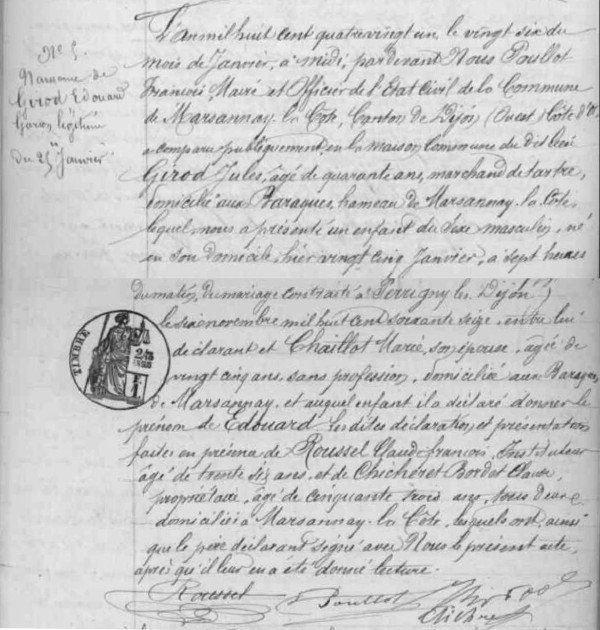 N° 5
Naissance de
Girod Edouard
Garçon légitime
du 25 Janvier
L'an mil huit cent quatre vingt un, le vingt six du
mois de Janvier, à midi, par devant Nous Poullot
François, Maire et Officier de l'Etat Civil de la Commune
de Marsannay-la-Côte, Canton de Dijon (Ouest) Côte d'Or
a comparu publiquement en la maison Commune du dit lieu
Girod Jules, âgé de quarante ans, marchand de tartre,
domicilié aux Baraques, hameau de Marsannay-la-Côte,
lequel nous a présenté un enfant du sexe masculin, né
en son domicile, hier vingt cinq Janvier, à sept heures
du matin, du mariage contracté à Perrigny les Dijon
le six novembre mil huit cent soixante seize, entre lui
déclarant et Chaillot Marie, son épouse, âgée de
vingt cinq ans, sans profession, domiciliée aux Baraques
de Marsannay, et auquel enfant il a déclaré donner le
prénom de Edouard. Les dites déclaration et présentation
faites en présence de Roussel Claude François, Instituteur
âgé de trente six ans, et de Chicheret Bordet Claude,
propriétaire, âgé de cinquante trois ans, tous deux
domiciliés à Marsannay-la-Côte, lesquels ont, ainsi
que le père déclarant signé avec Nous le présent acte,
après qu'il leur en a été donné lecture.
Roussel Poullot
TIMBRE